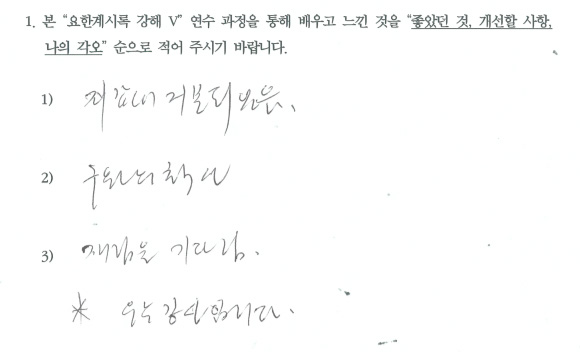 1. 본 “요한계시록 강해 V” 연수 과정을 통해 배우고 느낀 것을 “좋았던 것, 개선할 사항,
나의 각오” 순으로 적어 주시기 바랍니다.
1)
2) 구원의 확신
3) 재림을 기다림.
* 감사합니다.